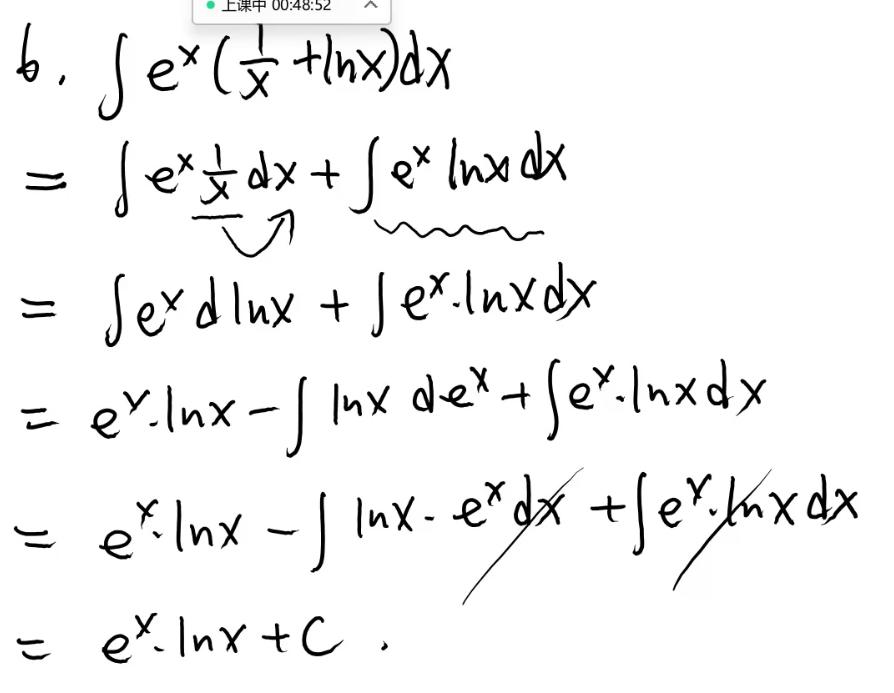 上课中 00:48:52
6. ∫ eˣ (1/x + lnx)dx
= ∫ eˣ 1/x dx + ∫ eˣ lnx dx
= ∫ eˣ d lnx + ∫ eˣ·lnx dx
= eˣ·lnx − ∫ lnx deˣ + ∫ eˣ·lnx dx
= eˣ·lnx − ∫ lnx · eˣ dx + ∫ eˣ·lnx dx
= eˣ·lnx + C .